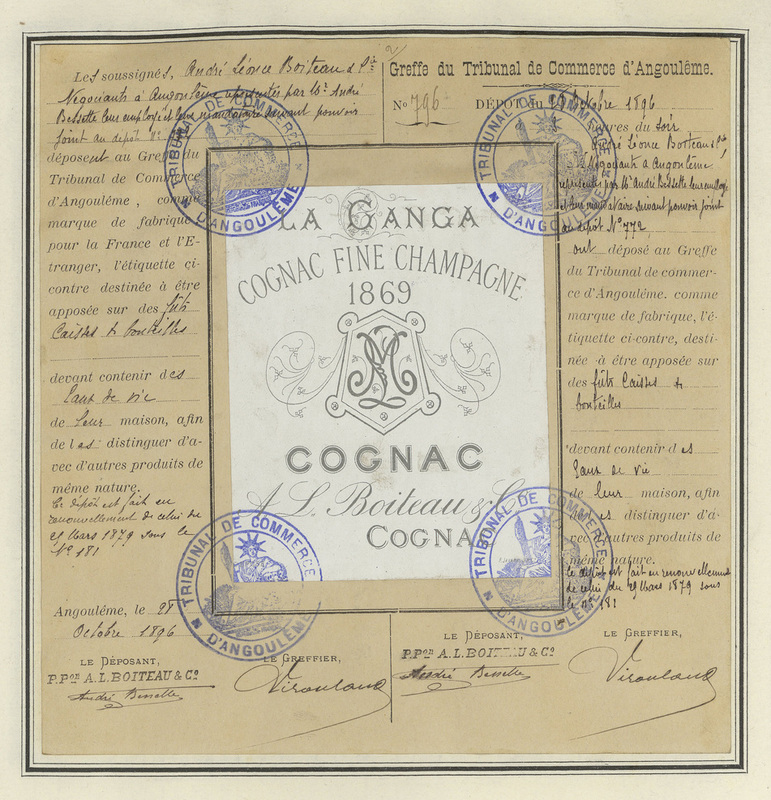 Les soussignés, André Léonce Boiteau & Cie
Négociants à Angoulême représentés par Mr André
Bessette leur employé et leur mandataire suivant pouvoir
joint au dépôt
déposent au Greffe du
Tribunal de Commerce
d'Angoulême, comme
marque de fabrique
pour la France et l'E-
tranger, l'étiquette ci-
contre destinée à être
apposée sur des fûts
Caisses & bouteilles
devant contenir des
Eaux de vie
de leur maison, afin
de les distinguer d'a-
vec d'autres produits de
même nature.
Ce dépôt est fait en
renouvellement de celui du
29 Mars 1879 sous le
No 181
Angoulême, le 28
Octobre 1896
LE DÉPOSANT,
P.Pon A.L. BOITEAU & Co
André Bessette
LE GREFFIER,
LA GANGA
COGNAC FINE CHAMPAGNE
1869
COGNAC
A. L. Boiteau & Co
COGNAC
TRIBUNAL DE COMMERCE
D'ANGOULÊME
TRIBUNAL DE COMMERCE
D'ANGOULÊME
TRIBUNAL DE COMMERCE
D'ANGOULÊME
TRIBUNAL DE COMMERCE
D'ANGOULÊME
2
Greffe du Tribunal de Commerce d'Angoulême.
No 796 DÉPÔT du 28 Octobre 1896
heures du soir
André Léonce Boiteau & Cie,
Négociants à Angoulême
représentés par Mr André Bessette leur employé
et leur mandataire suivant pouvoir joint
au dépôt No 772,
ont déposé au Greffe
du Tribunal de commer-
ce d'Angoulême. comme
marque de fabrique, l'é-
tiquette ci-contre, desti-
née à être apposée sur
des fûts Caisses &
bouteilles
devant contenir des
Eaux de vie
de leur maison, afin
de les distinguer d'a-
vec d'autres produits de
même nature.
Ce dépôt est fait en renouvellement
de celui du 29 Mars 1879 sous
le no 181
LE DÉPOSANT,
P.Pon A.L. BOITEAU & Co
André Bessette
LE GREFFIER,